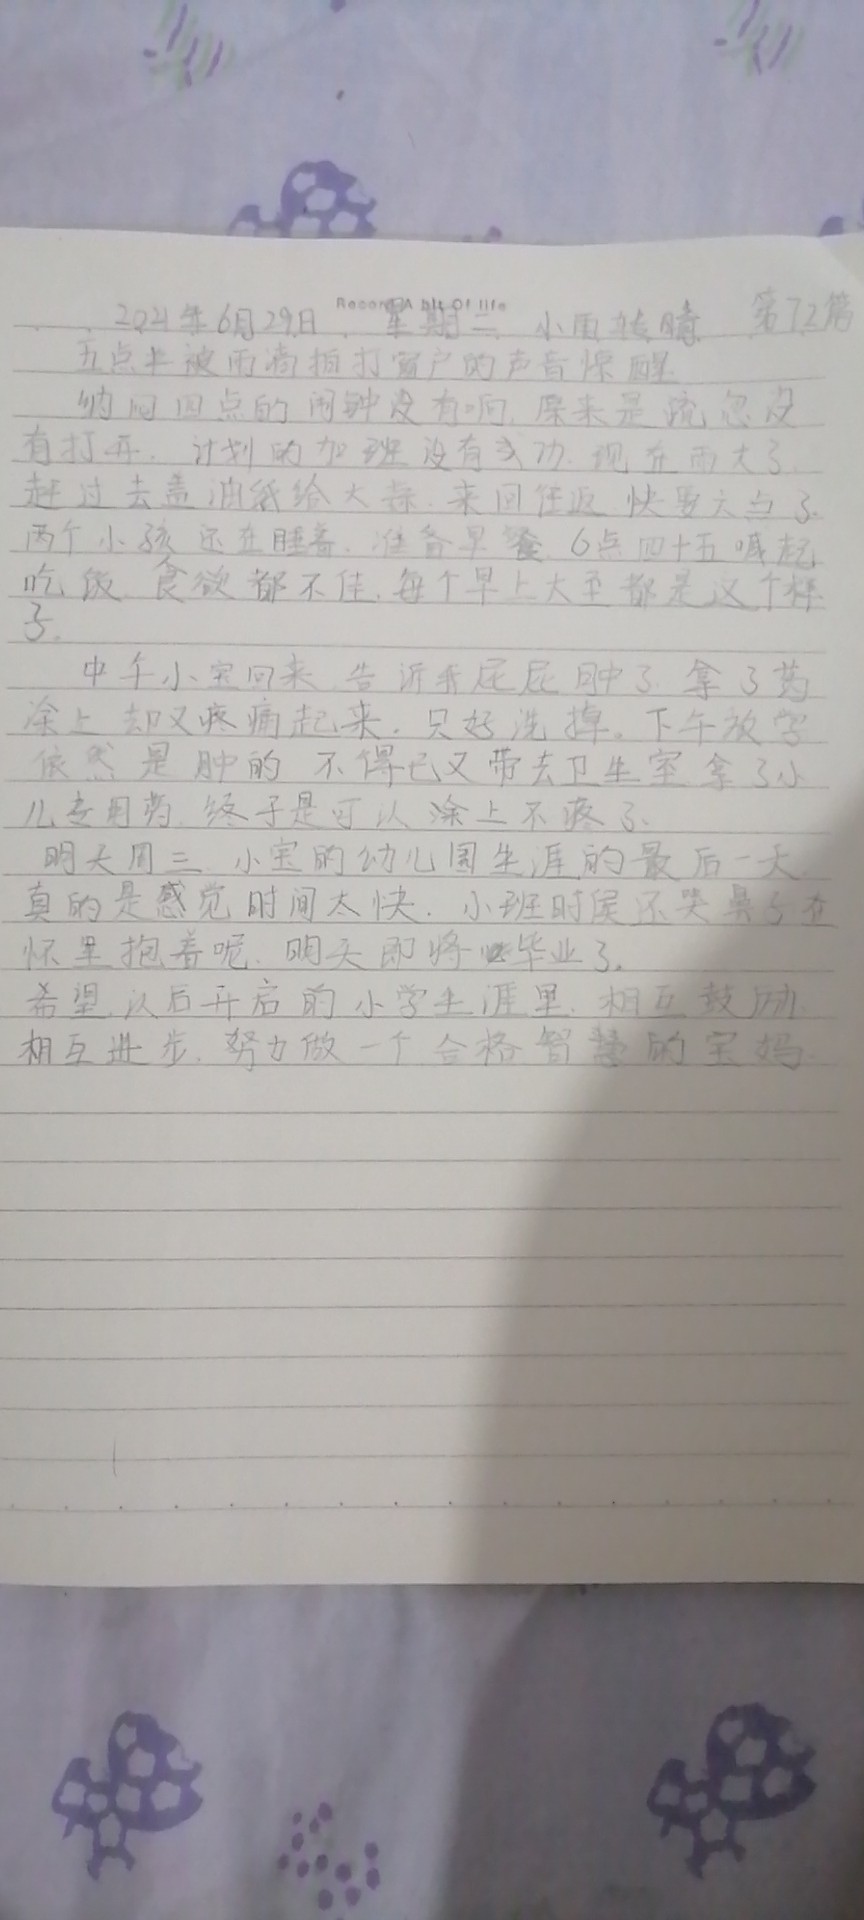 Record A bit Of life
2021年6月29日 星期二 小雨转晴 第72篇
五点半被雨滴拍打窗户的声音惊醒
纳闷四点的闹钟没有响,原来是疏忽没
有打开. 计划的加班没有成功. 现在雨大了.
赶过去盖油纸给大蒜. 来回往返 快要六点了.
两个小孩还在睡着. 准备早餐. 6点四十五喊起
吃饭. 食欲都不佳. 每个早上大至都是这个样
子.
中午小宝回来 告诉我屁屁肿了 拿了药
涂上却又疼痛起来. 只好洗掉。下午放学
依然是肿的 不得已又带去卫生室拿了小
儿专用药. 终于是可以涂上不疼了.
明天周三 小宝的幼儿园生涯的最后一天.
真的是感觉时间太快. 小班时候还哭鼻子在
怀里抱着呢. 明天即将毕业了.
希望 以后开启的小学生涯里. 相互鼓励.
相互进步. 努力做一个合格智慧的宝妈.